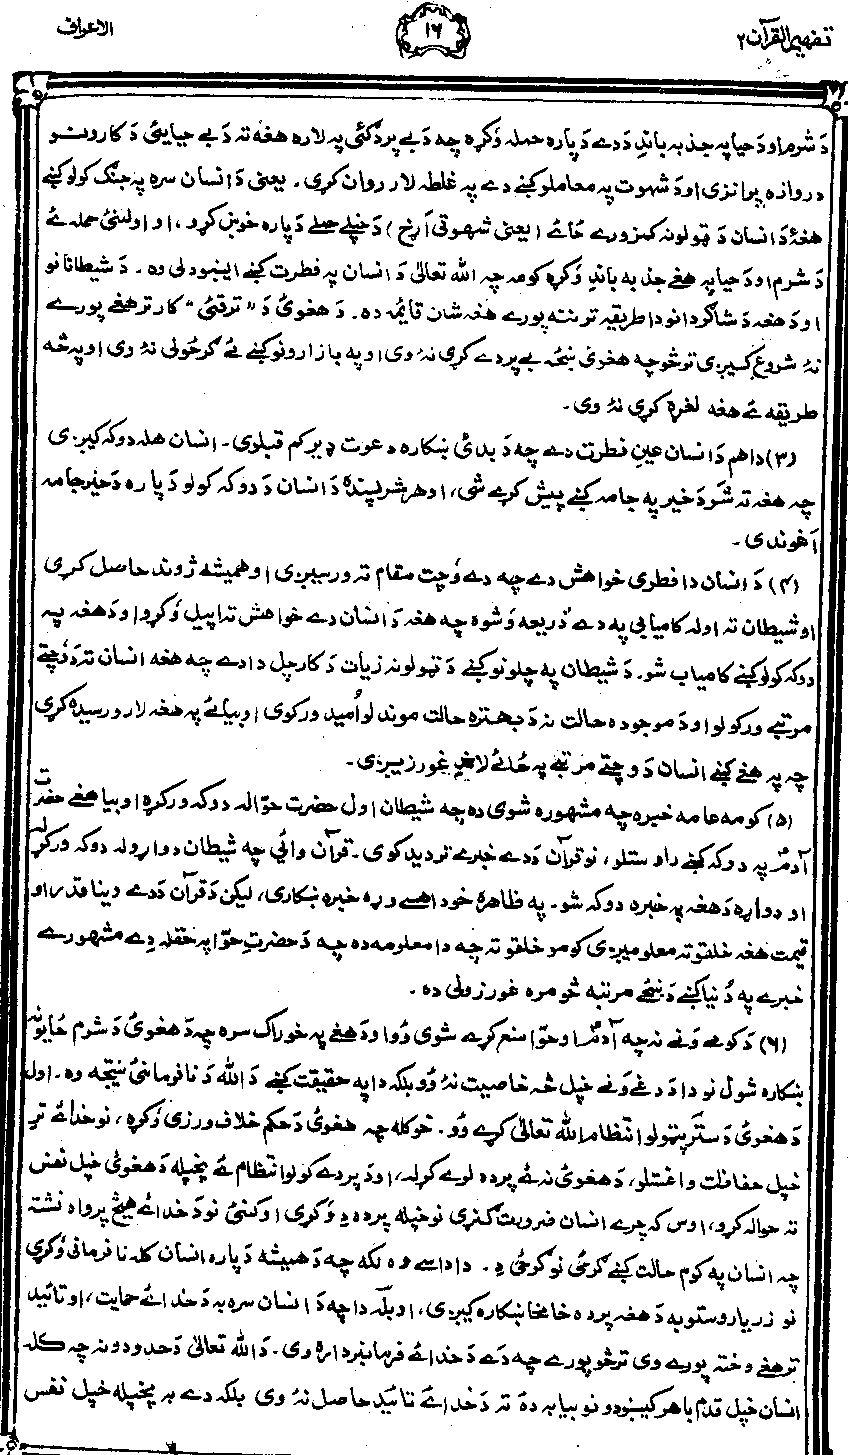 تفهیم القرآن ۲
۱۶
الاعراف
دَ شرم او دَ حیا په جذبه باندِ دَ دے دَ پاره حمله وُکړه چه دَ بے پردګئی په لاره هغه ته دَ بے حیایئی دَ کارونو
دروازه پرانزی او دَ شهوت په معاملو کښے دے په غلطه لار روان کړی ۔ یعنی دَ انسان سره په جنګ کولو کښے
هغۀ دَ انسان دَ ټولو نه کمزورے ځائے (یعنی شهوتی اَړخ) دَ خپلے حملے دَ پاره خوښ کړو، او اولنئی حمله ئے
دَ شرم او دَ حیا په هغے جذبه باندِ وُکړه کومه چه الله تعالیٰ دَ انسان په فطرت کښے ایښودلی وه ۔ دَ شیطانانو
او دَ هغه دَ شاګردانو دا طریقه تر ننه پورے هغه شان قایمه ده ۔ دَ هغویٔ دَ ”ترقئی“ کار تر هغے پورے
نۀ شروع کیږی تر څو چه هغویٔ ښځه بے پردے کړی نۀ وی او په بازارونو کښے ئے ګرځولی نۀ وی او په څه
طریقه ئے هغه لغړه کړی نۀ وی ۔
(۳) دا هم دَ انسان عین فطرت دے چه دَ بدئ ښکاره دعوت ډیر کم قبلوی ۔ انسان هله دوکه کیږی
چه هغه ته شَر دَ خیر په جامه کښے پیش کړے شی، او هر شرپسندۀ دَ انسان دَ دوکه کولو دَ پاره دَ خیر جامه
اَغوندی ۔
(۴) دَ انسان دا فطری خواهش دے چه دے وُچت مقام ته ورسیږی او همیشه ژوند حاصل کړی
او شیطان ته اوله کامیابی په دے ذریعه وُشوه چه هغه دَ انسان دے خواهش ته اپیل وُکړو او دَ هغه په
دوکه کولو کښے کامیاب شو ۔ دَ شیطان په چلونو کښے دَ ټولو نه زیات دَ کار چل دا دے چه هغه انسان ته دَ وُچتے
مرتبے ورکولو او دَ موجوده حالت نه دَ بهتره حالت موندلو اُمید ورکوی او بیائے په هغه لار ورسیده کړی
چه په هغے کښے انسان دَ وچتے مرتبے په ځائے لاندِ غورزیږی ۔
(۵) کومه عامه خبره چه مشهوره شوی ده چه شیطان اول حضرت حوّا له دوکه ورکړه او بیا هغے حضرت
آدمؑ په دوکه کښے راوستلو، نو قرآن دَ دے خبرے تردید کوی ۔ قرآن وائی چه شیطان دواړو له دوکه ورکړله
او دواړه دَ هغه په خبره دوکه شو ۔ په ظاهره خو دا هسے وړه خبره ښکاری، لیکن دَ قرآن دَ دے وینا قدر او
قیمت هغه خلقو ته معلومیږی کومو خلقو ته چه دا معلومه ده چه دَ حضرتِ حوّا په حقله دِے مشهورے
خبرے په دُنیا کښے دَ ښځے مرتبه څومره غورزولی ده ۔
(۶) دَ کومے وَنے نه چه آدمؑ او حوّا منع کړے شوی وُو او دَ هغے په خوراک سره چه دَ هغویٔ دَ شرم ځایونه
ښکاره شول نو دا دَ دغے وَنے خپل څه خاصیت نۀ وُو بلکه دا په حقیقت کښے دَ الله دَ نافرمانئی نتیجه وه ۔ اول
دَ هغویٔ دَ ستر پټولو انتظام الله تعالیٰ کړے وُو ۔ خو کله چه هغویٔ دَ حکم خلاف ورزی وُکړه، نو خدائے تر
خپل حفاظت واغستلو، دَ هغویٔ نه ئے پرده لرے کړله، او دَ پردے کولو انتظام ئے پخپله دَ هغویٔ خپل نفس
ته حواله کړو، اوس که چرے انسان ضرورت ګنړی نو خپله پرده دِ وُکړی او کنئی نو دَ خدائے هیڅ پرواه نشته
چه انسان په کوم حالت کښے ګرځی نو ګرځی دِ ۔ دا داسے وه لکه چه دَ همیشه دَ پاره انسان کله نافرمانی وُکړی
نو زر یا روستو به دَ هغه پرده خامخا ښکاره کیږی، او بله دا چه دَ انسان سره به دَ خدائے حمایت، او تائید
تر هغے وخته پورے وی تر څو پورے چه دے دَ خدائے فرمانبرداره وی ۔ دَ الله تعالیٰ دَ حدودو نه چه کله
انسان خپل قدم باهر کیښودو نو بیا به دۀ ته دَ خدائے تائید حاصل نۀ وی بلکه دے به پخپله خپل نفس